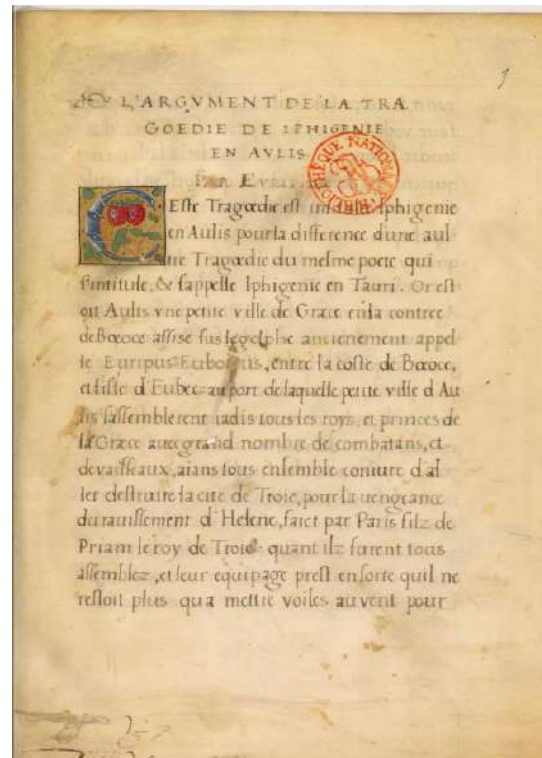 1
L'ARGVMENT DE LA TRA
GOEDIE DE IPHIGENIE
EN AVLIS
PAR EVRIPIDE
Ceste Tragœdie est intitulé Iphigenie
en Aulis pour la difference dune aul
tre Tragœdie du mesme poete qui
sintitule, & sappelle Iphigenie en Tauri. Or est
oit Aulis vne petite ville de Grœce en la contree
de Bœoce assise sus le golphe anciennement appel
le Euripus Euboicus, entre la coste de Bœoce,
et lisle d'Eubee: au port de laquelle petite ville d'Au
lis sassemblerent iadis tous les roys, et princes de
la Grœce auec grand nombre de combatans, et
de vaisseaux, aians tous ensemble coniure d'al
ler destruire la cite de Troie, pour la uengeance
du rauissement d'Helene, faict par Paris filz de
Priam le roy de Troie: quant ilz furent tous
assemblez, et leur equipage prest en sorte quil ne
restoit plus qua mettre voiles au vent pour